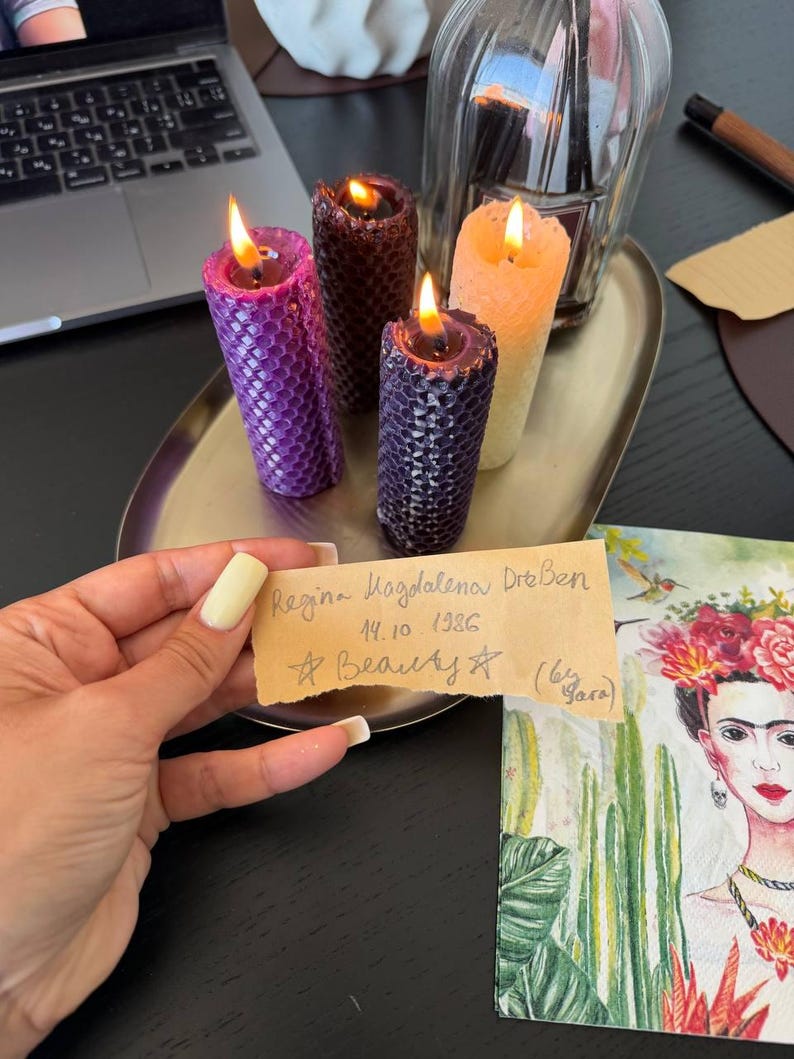 Regina Magdalena Dreßen
14.10.1986
☆ Beauty ☆
(by
Yara)